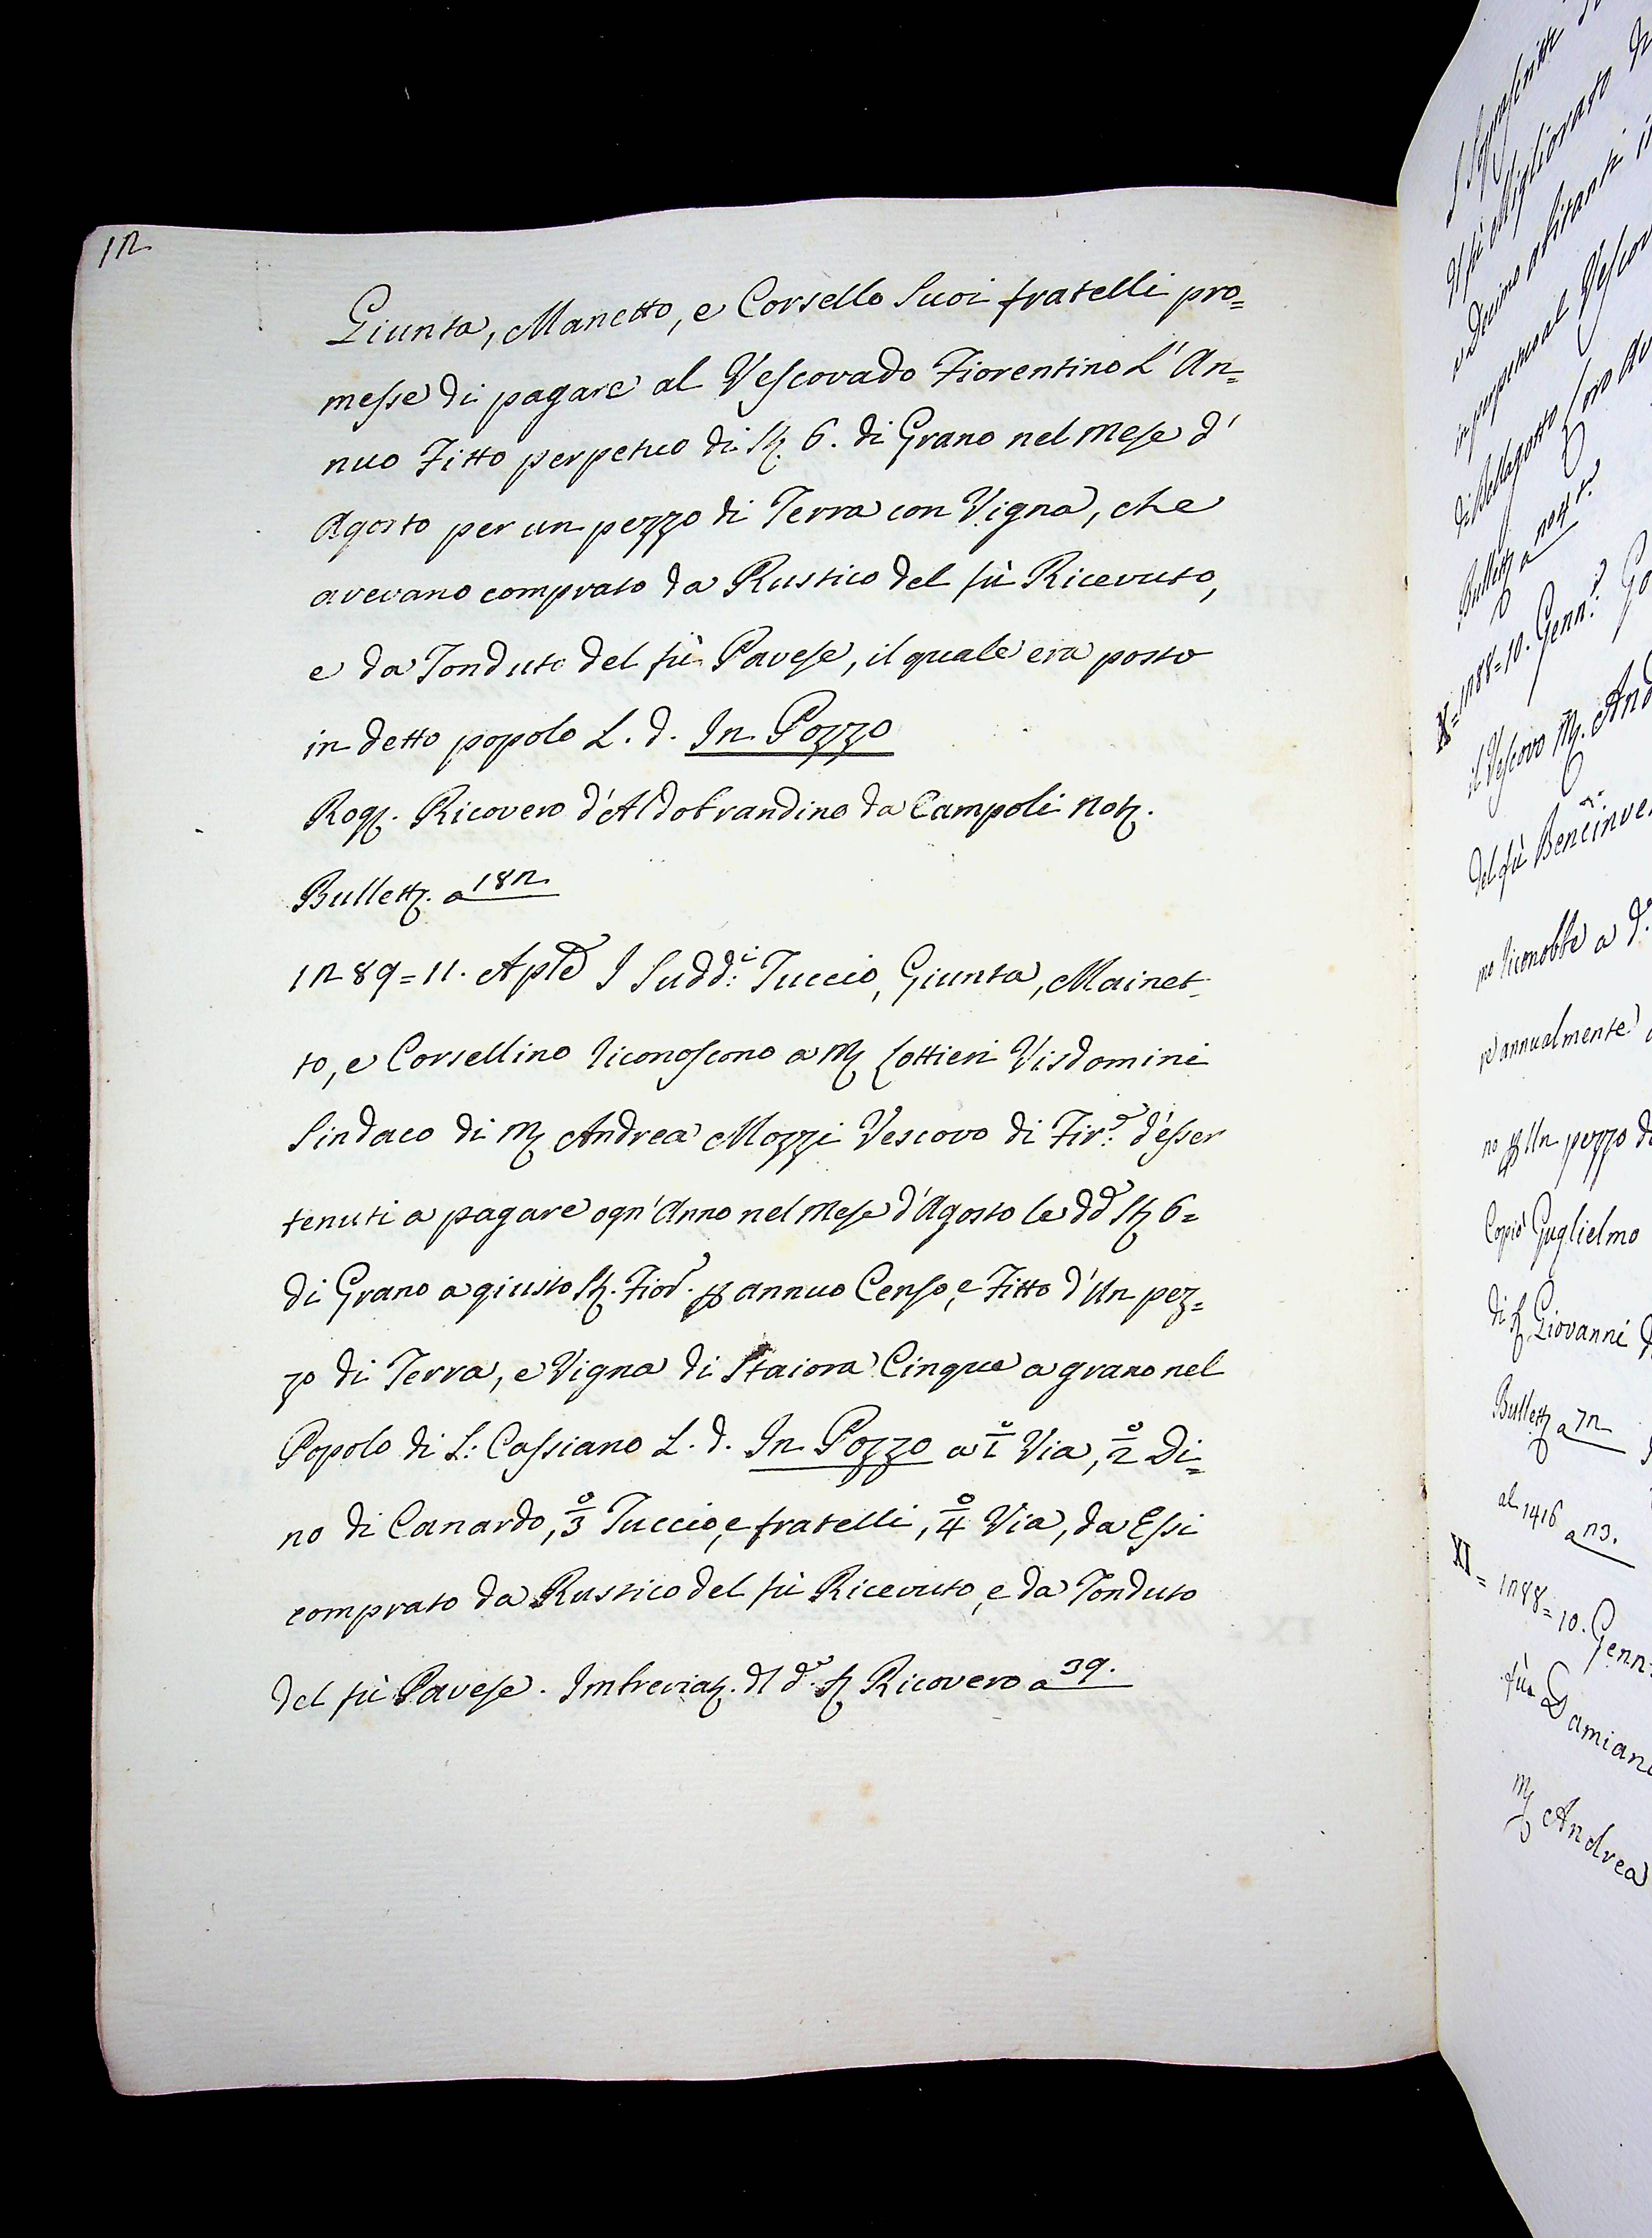 12
Giunta, Manetto, e Corsello Suoi fratelli pro=
messe di pagare al Vescovado Fiorentino L'An=
nuo Fitto perpetuo di St. 6. di Grano nel mese d'
Agosto per un pezzo di Terra con Vigna, che
avevano comprato da Rustico del fù Ricevuto,
e da Tonduto del fù Pavese, il quale era posto
in detto popolo L. d. In Pozzo
Rog. Ricovero d'Aldobrandino da Campoli Not.
Bullett. a 182
1289=11. Aple I Sudd.i Tuccio, Giunta, Mainet=
to, e Corsellino riconoscono a M. Lottieri Visdomini
Sindaco di M. Andrea Mozzi Vescovo di Fir.e d'esser
tenuti a pagare ogn'Anno nel Mese d'Agosto le dd.e St. 6=
di Grano a giusto St. Fior. p annuo Censo, e Fitto d'Un pez=
zo di Terra, e Vigna di Staiora Cinque a grano nel
Popolo di S: Cassiano L. d. In Pozzo a 1° Via, 2° Di=
no di Canardo, 3° Tuccio, e fratelli, 4° Via, da Essi
comprato da Rustico del fù Ricevuto, e da Tonduto
del fù Pavese. Imbreviat. dl d.o S. Ricovero a 39.
Migliorato
e Decimo abitanti in
in perpetuo al Vescov
di Bellagotto
Bullett. a
X=1288=10. Genn.o
il Vescovo M. And
del fù Bencinve
mo riconobbe a d.
re annualmente
no p Un pezzo d
Coppio Guglielmo
di S. Giovanni
Bullett. a 72
al 1416 a 23.
XI= 1288=10. Genn:
fù Damiano
M. Andrea